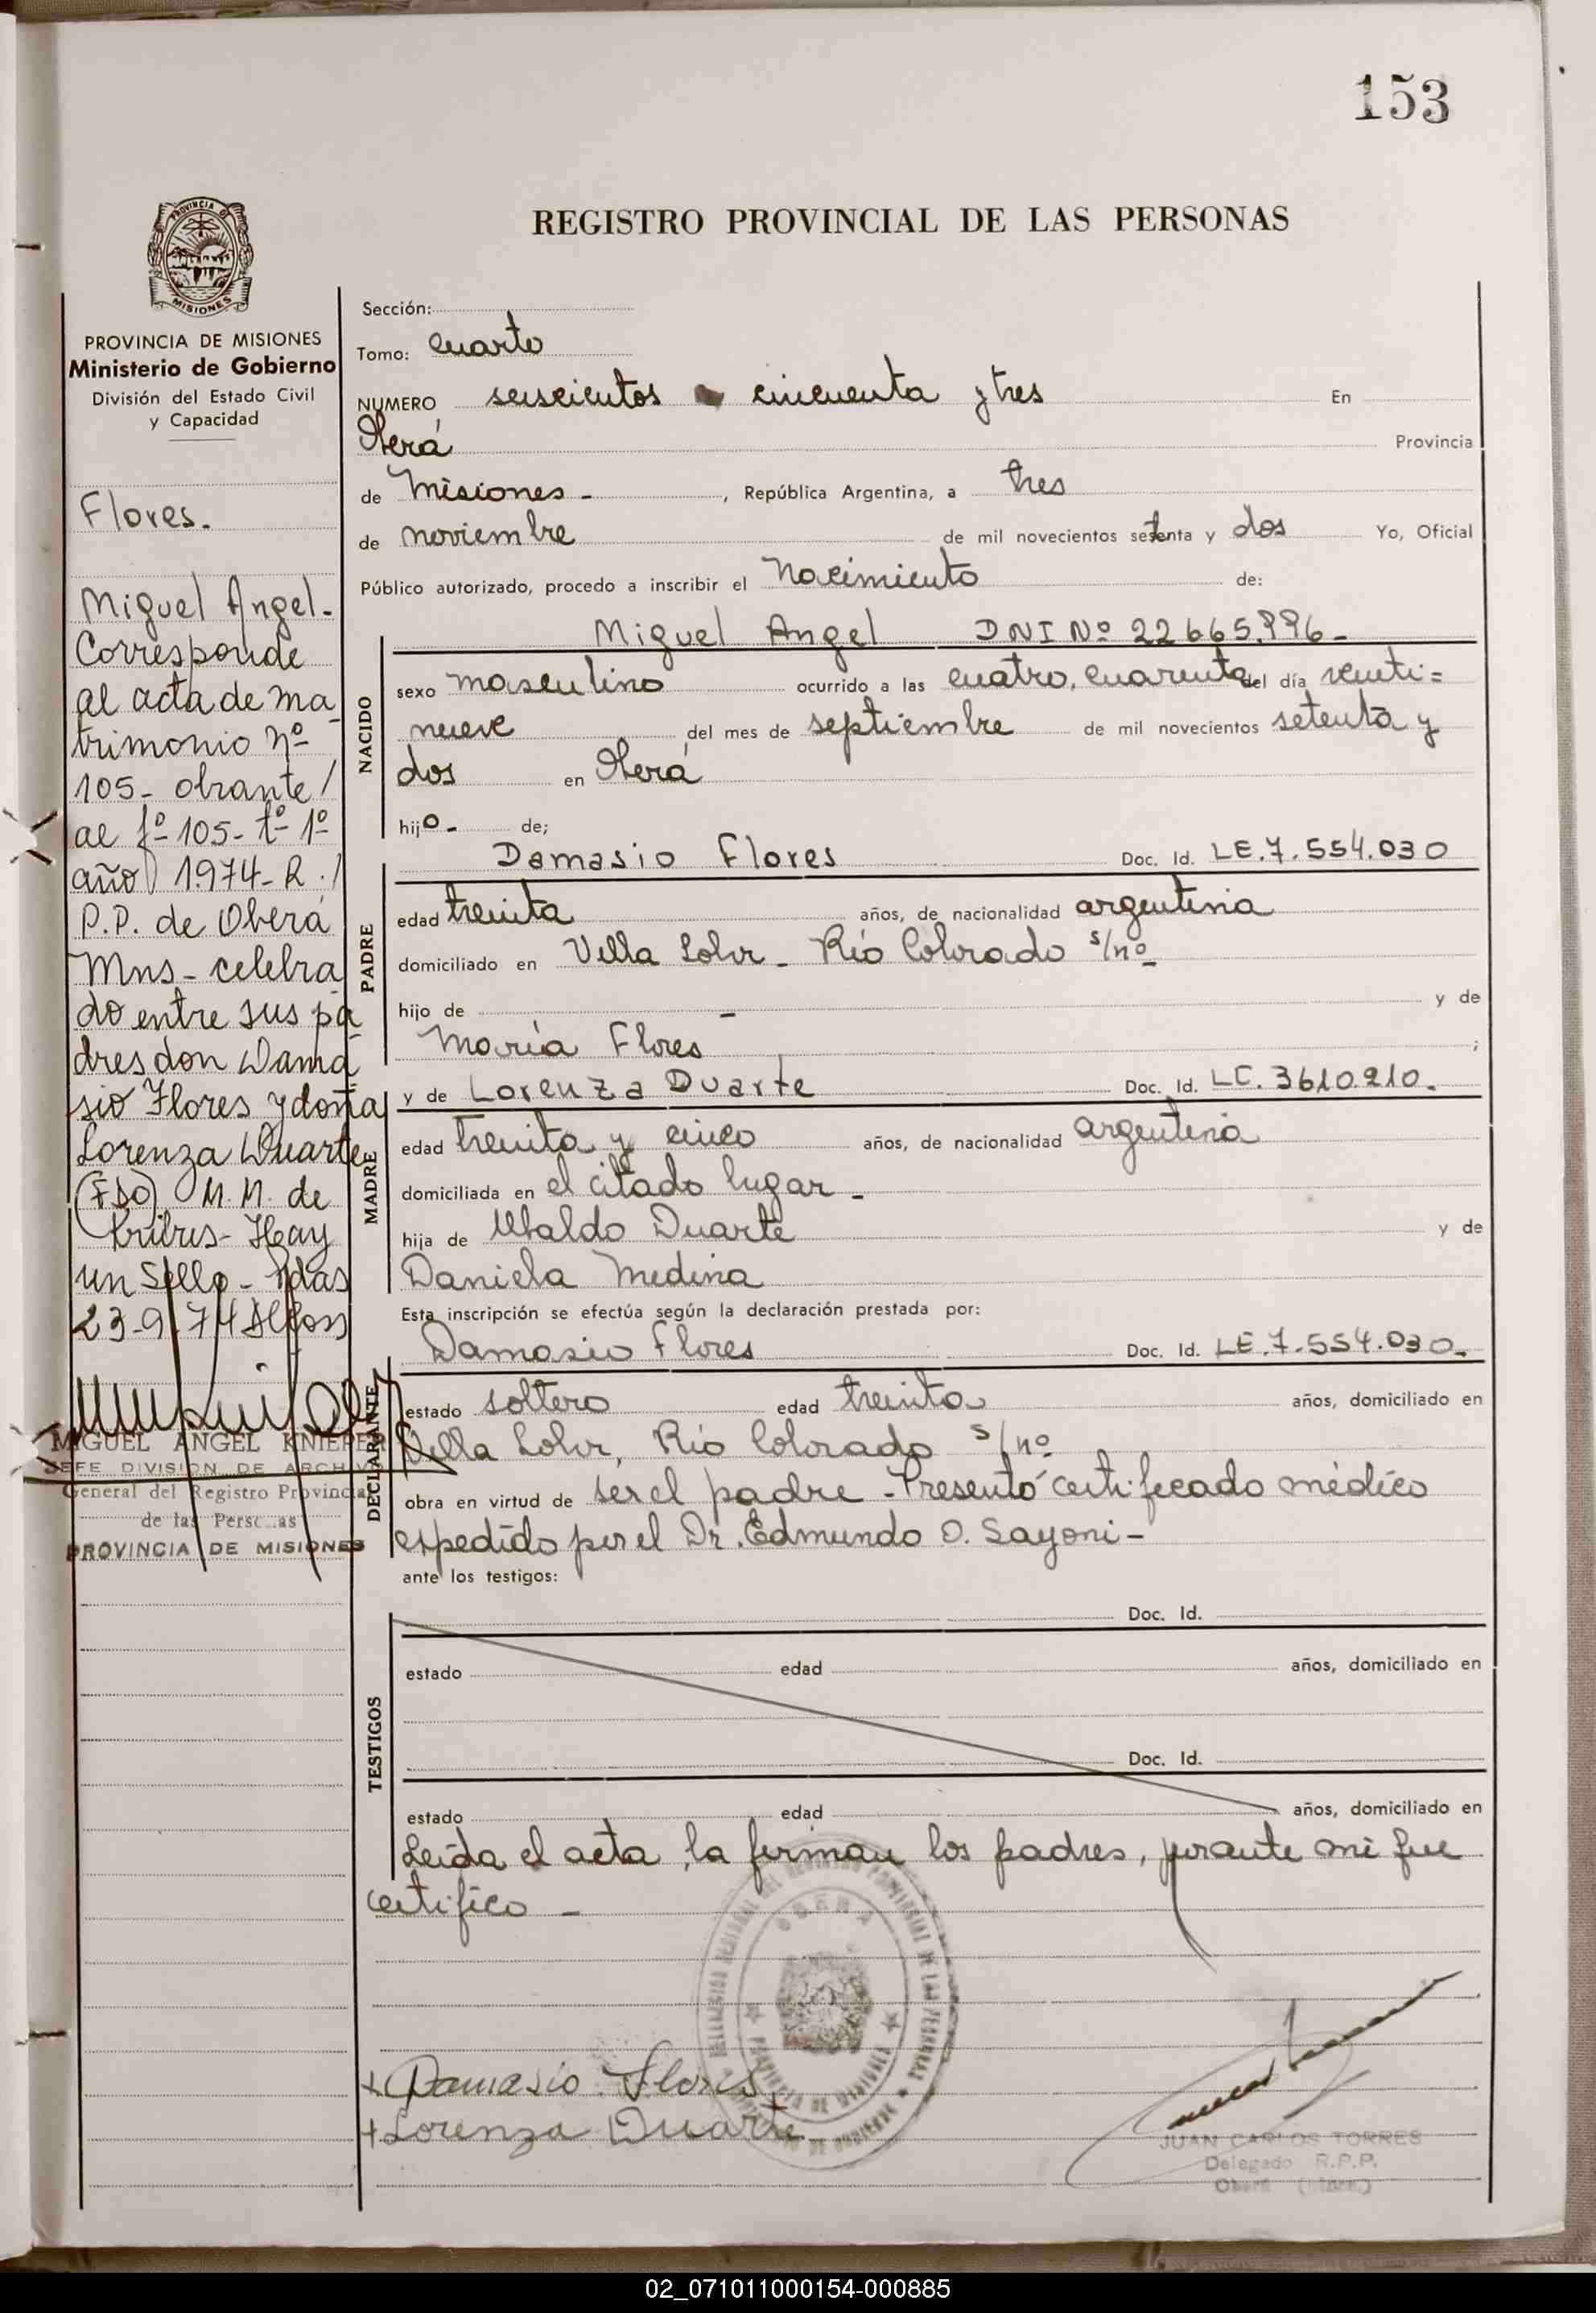 153
PROVINCIA DE
MISIONES
REGISTRO PROVINCIAL DE LAS PERSONAS
PROVINCIA DE MISIONES
Ministerio de Gobierno
División del Estado Civil
y Capacidad
Flores.
Miguel Angel.-
Corresponde
al acta de ma
trimonio nº
105- obrante/
al fº 105- tº 1º
año 1974- R./
P.P. de Oberá
Mns- celebra
do entre sus pa
dres don Dama
sio Flores y doña
Lorenza Duarte
(FDO) M.M. de
Hay
un Sello - Pdas
23-9-74
MIGUEL ANGEL KNIEPER
JEFE DIVISION DE ARCHIVO
General del Registro Provincial
de las Pers as
PROVINCIA DE MISIONES
Sección:
Tomo: Cuarto
NUMERO seiscientos cincuenta y tres En
Oberá Provincia
de Misiones - , República Argentina, a tres
de noviembre de mil novecientos setenta y dos Yo, Oficial
Público autorizado, procedo a inscribir el Nacimiento de:
Miguel Angel DNI Nº 22665.996-
NACIDO
sexo masculino ocurrido a las cuatro, cuarenta del día veinti=
nueve del mes de septiembre de mil novecientos setenta y
dos en Oberá
hijo- de;
PADRE
Damasio Flores Doc. Id. LE.7.554.030
edad treinta años, de nacionalidad argentina
domiciliado en Villa Lohr - Río Colorado s/nº-
hijo de - y de
María Flores ;
MADRE
y de Lorenza Duarte Doc. Id. LC. 3610210.
edad treinta y cinco años, de nacionalidad argentina
domiciliada en el citado lugar -
hija de Ubaldo Duarte y de
Daniela Medina
Esta inscripción se efectúa según la declaración prestada por:
DECLARANTE
Damasio Flores Doc. Id. LE.7.554.030-
estado soltero edad treinta años, domiciliado en
Villa Lohr, Río Colorado s/nº
obra en virtud de ser el padre - Presentó certificado médico
expedido por el Dr. Edmundo O. Sayoni-
ante los testigos:
TESTIGOS
Doc. Id.
estado edad años, domiciliado en
Doc. Id.
estado edad años, domiciliado en
Leída el acta, la firman los padres, por ante mí que
certifico -
OBERA
PROVINCIA DE MISIONES
Damasio Flores
Lorenza Duarte
JUAN CARLOS TORRES
Delegado R.P.P.
Oberá
02_071011000154-000885